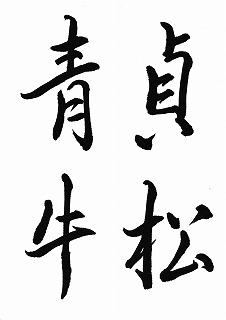 貞松
青牛